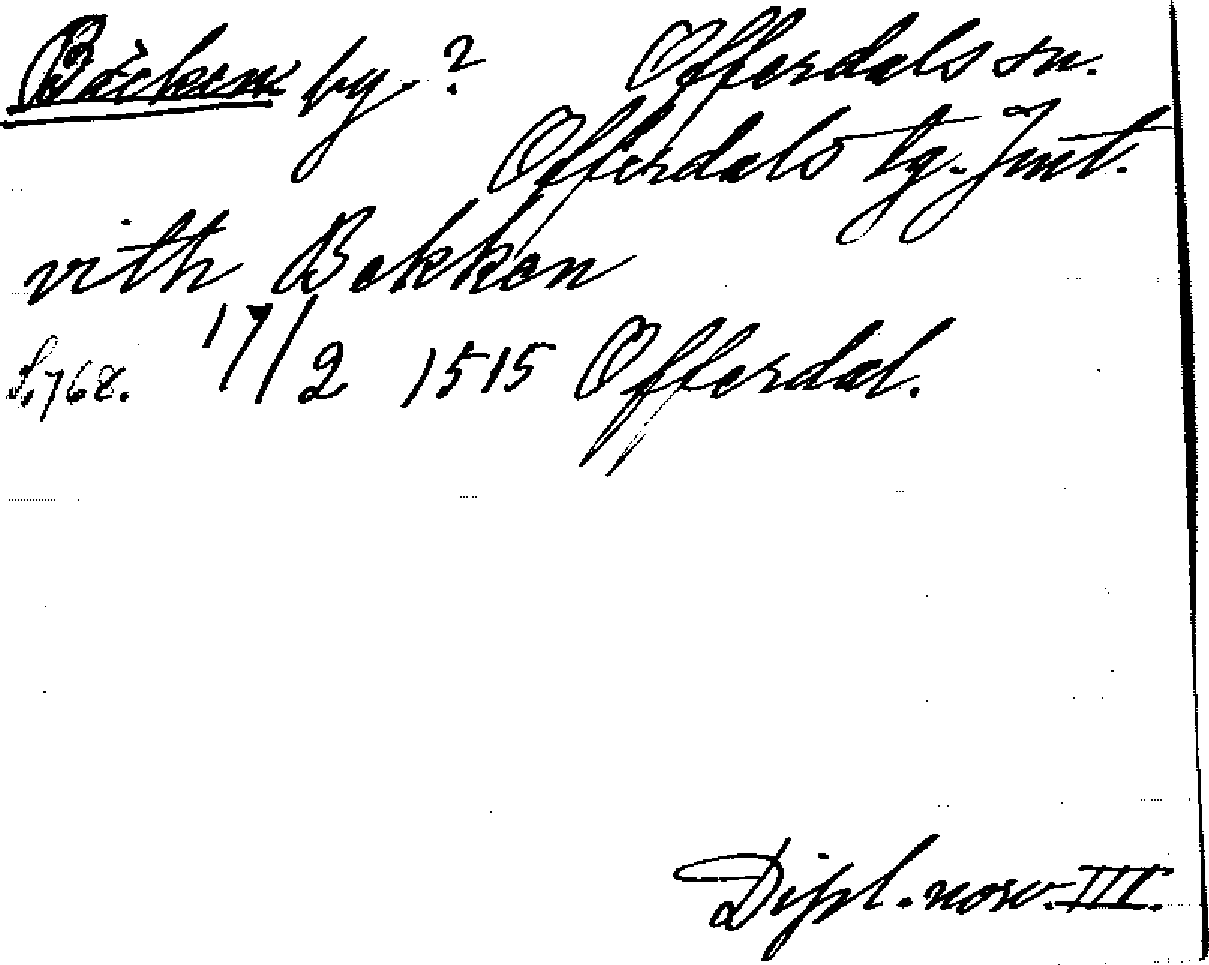 Bäcken by.? Offerdals sn.
Offerdals tg. Jmt.
vith Bekken
S. 768. 17/2 1515 Offerdal.
Dipl. norv. III.